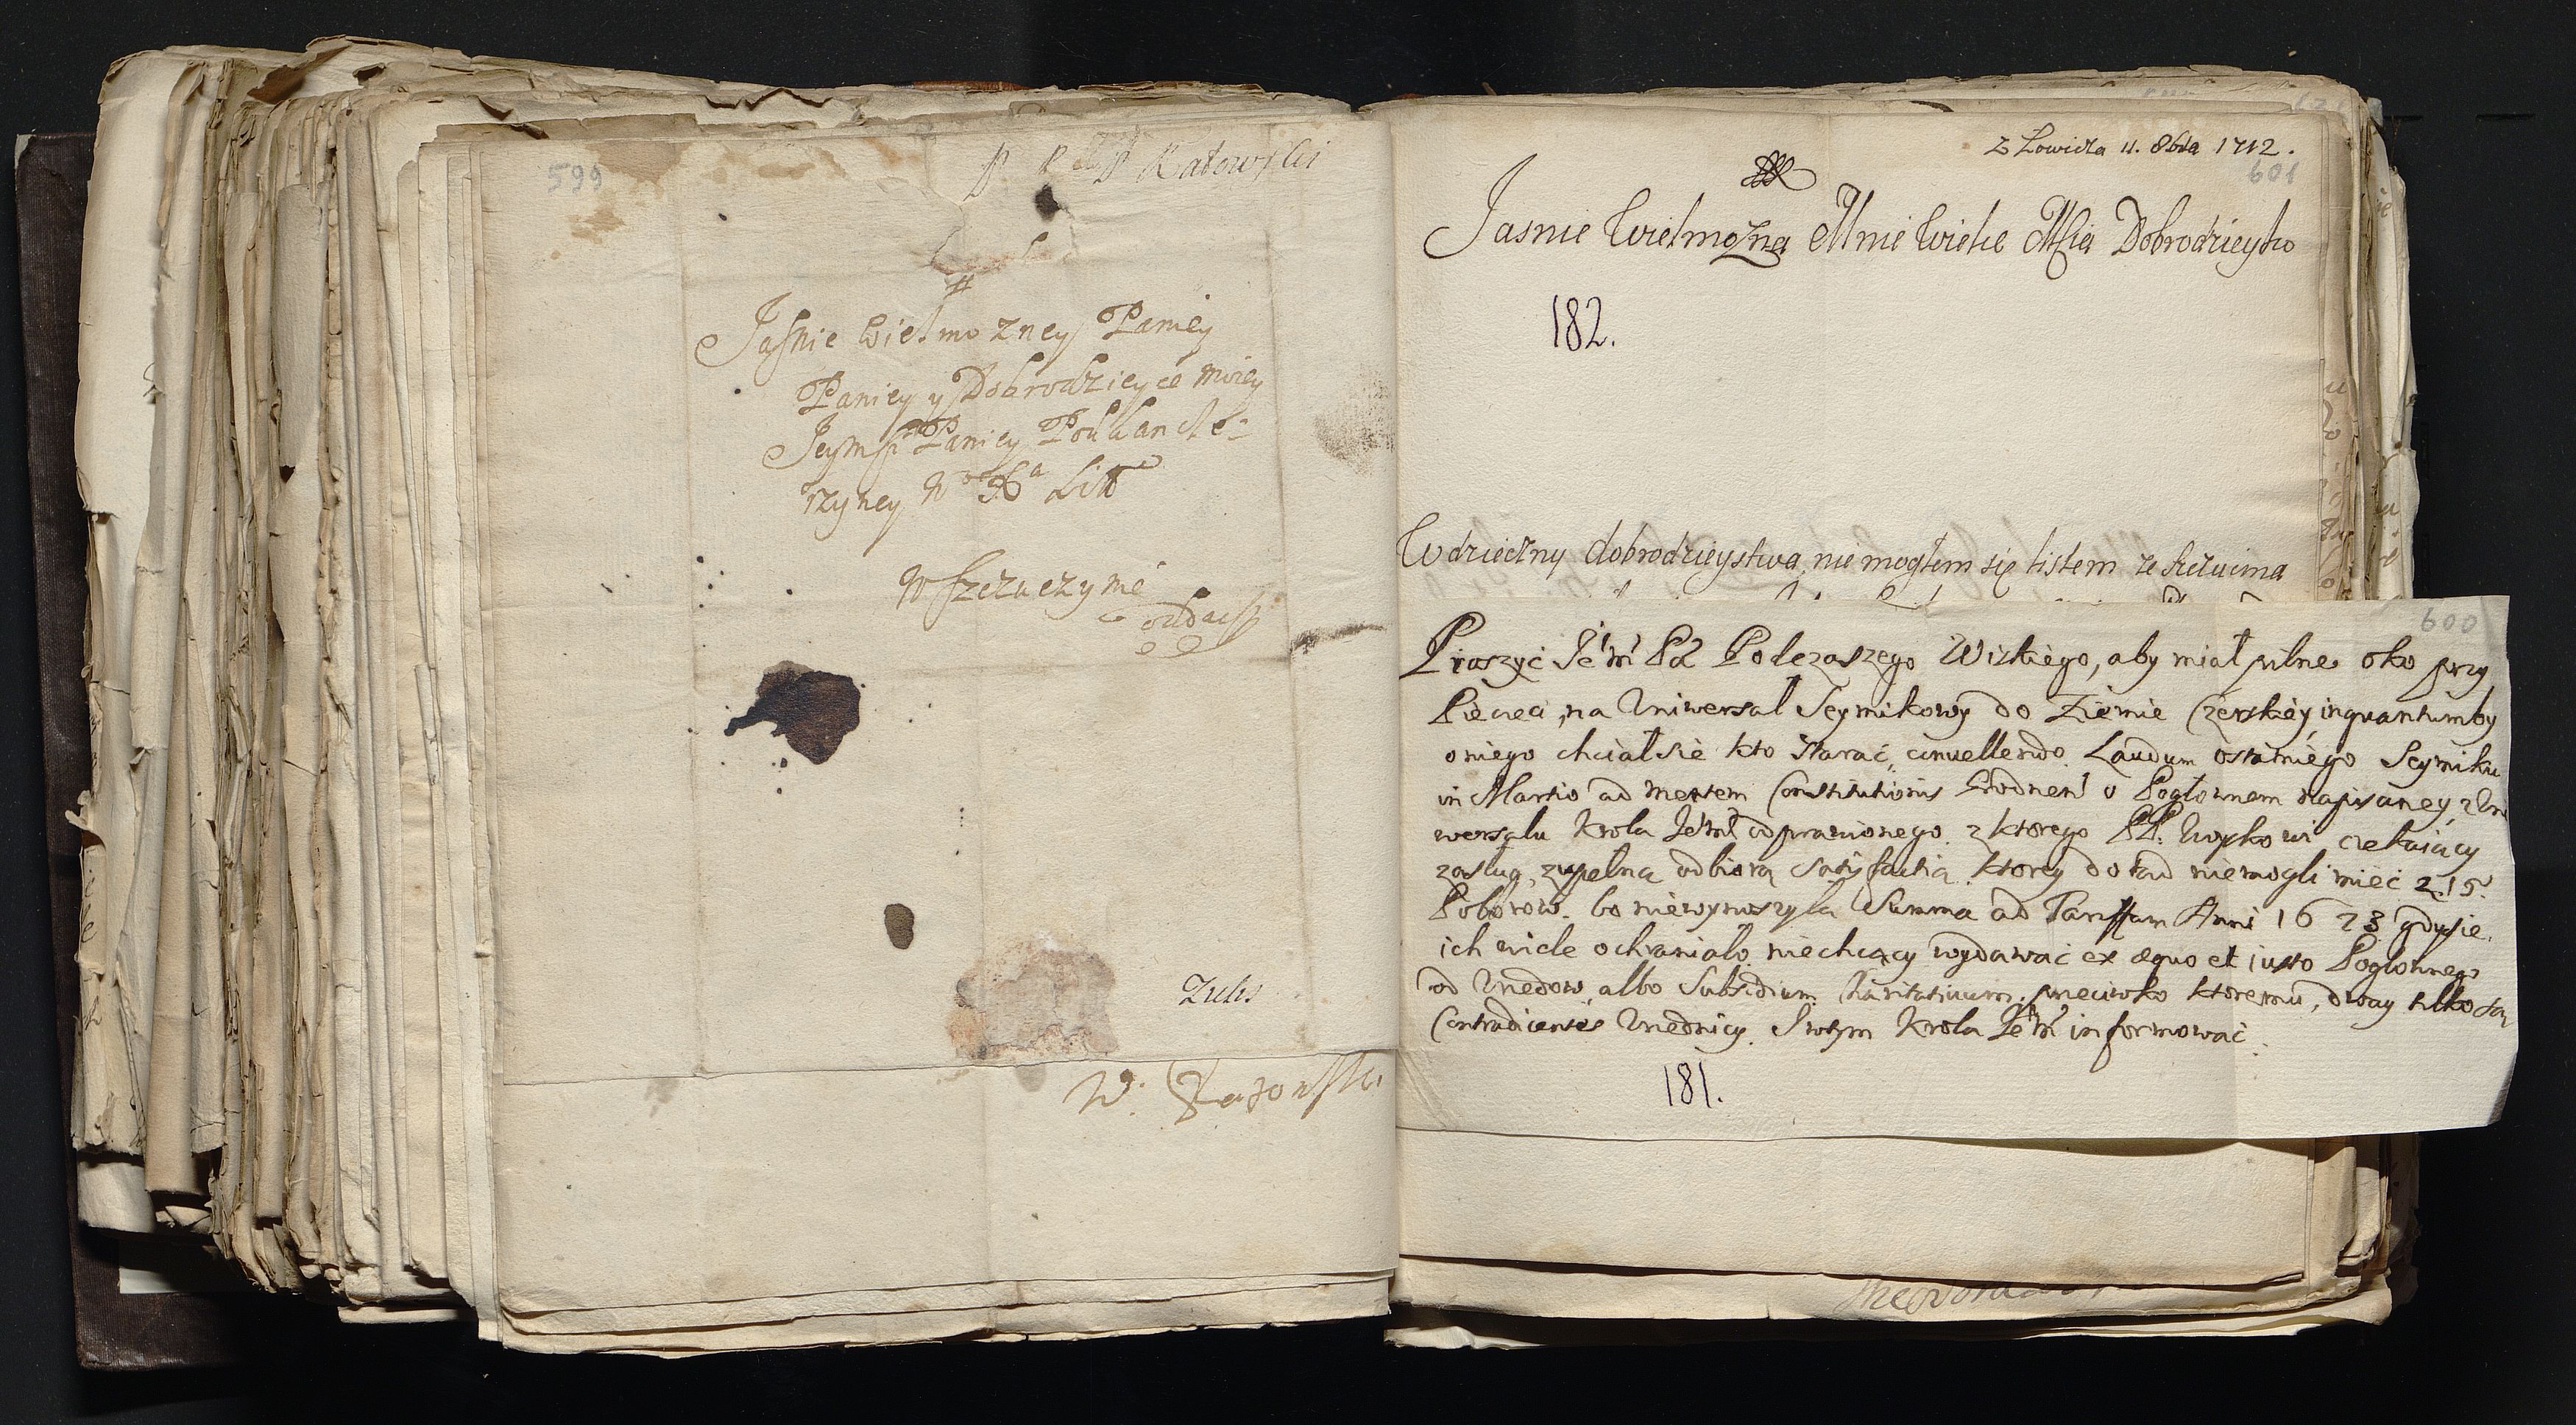 599
Katowski
#
Jasnie Wielmozney Paniey
Paniey y Dobrodzieyce moiey
Jeymsi Paniey Podkancle-
rzyney W° X^a Litt°
W Szczuczynie
oddacs
W.
Z Łowicza 11. 8bra 1712.
601
Jasnie Wielmożna Mnie Wielce Mscia Dobrodzieyko
182.
Wdzieczny dobrodzieystwa, nie mogłem się listem ze Szczucina
600
Proszyć Jem Pa Podczaszego Wizkiego, aby miał pilne oko przy
Pieczęci, na Uniwersał Seymikowy do Ziemie Czerskiey, inquantumby
oniego chciał sie kto starać, convellendo Laudum ostatniego Seymiku
in Martio ad mentem Constitutionis Grodnens o Pogłownem napisaney, z Uni
wersalu Krola Jem odprawionego. z ktorego PP. Woyskowi czekaiący
zasług, zupełną odbiorą satisfactią. ktorey dotąd niemogli mieć z 15.
Poborow. bo niewynoszyła Summa ad Tariffam Anni 1673 gdysie
ich wiele ochraniało, niechcący wydawać ex æquo et iusto Pogłownego
od Urzędow, albo Subsidium Charitativum, przeciwko ktoremu, dway tilko są
Contradicentes Urzednicy. I wtym Krola Jem informować.
181.